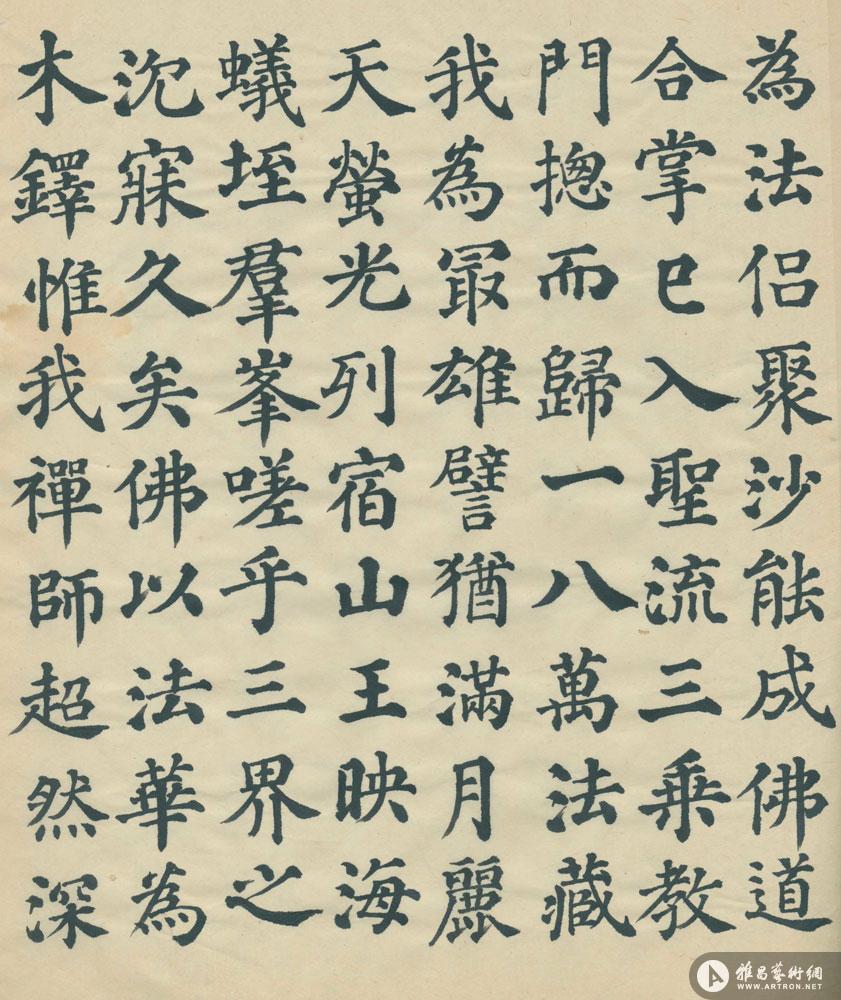 為法侣聚沙能成佛道
合掌已入聖流三乗教
門揔而歸一八萬法藏
我為冣雄譬猶滿月麗
天螢光列宿山王映海
蟻垤羣峯嗟乎三界之
沉寐久矣佛以法華為
木鐸惟我禪師超然深
雅昌藝術網
WWW.ARTRON.NET